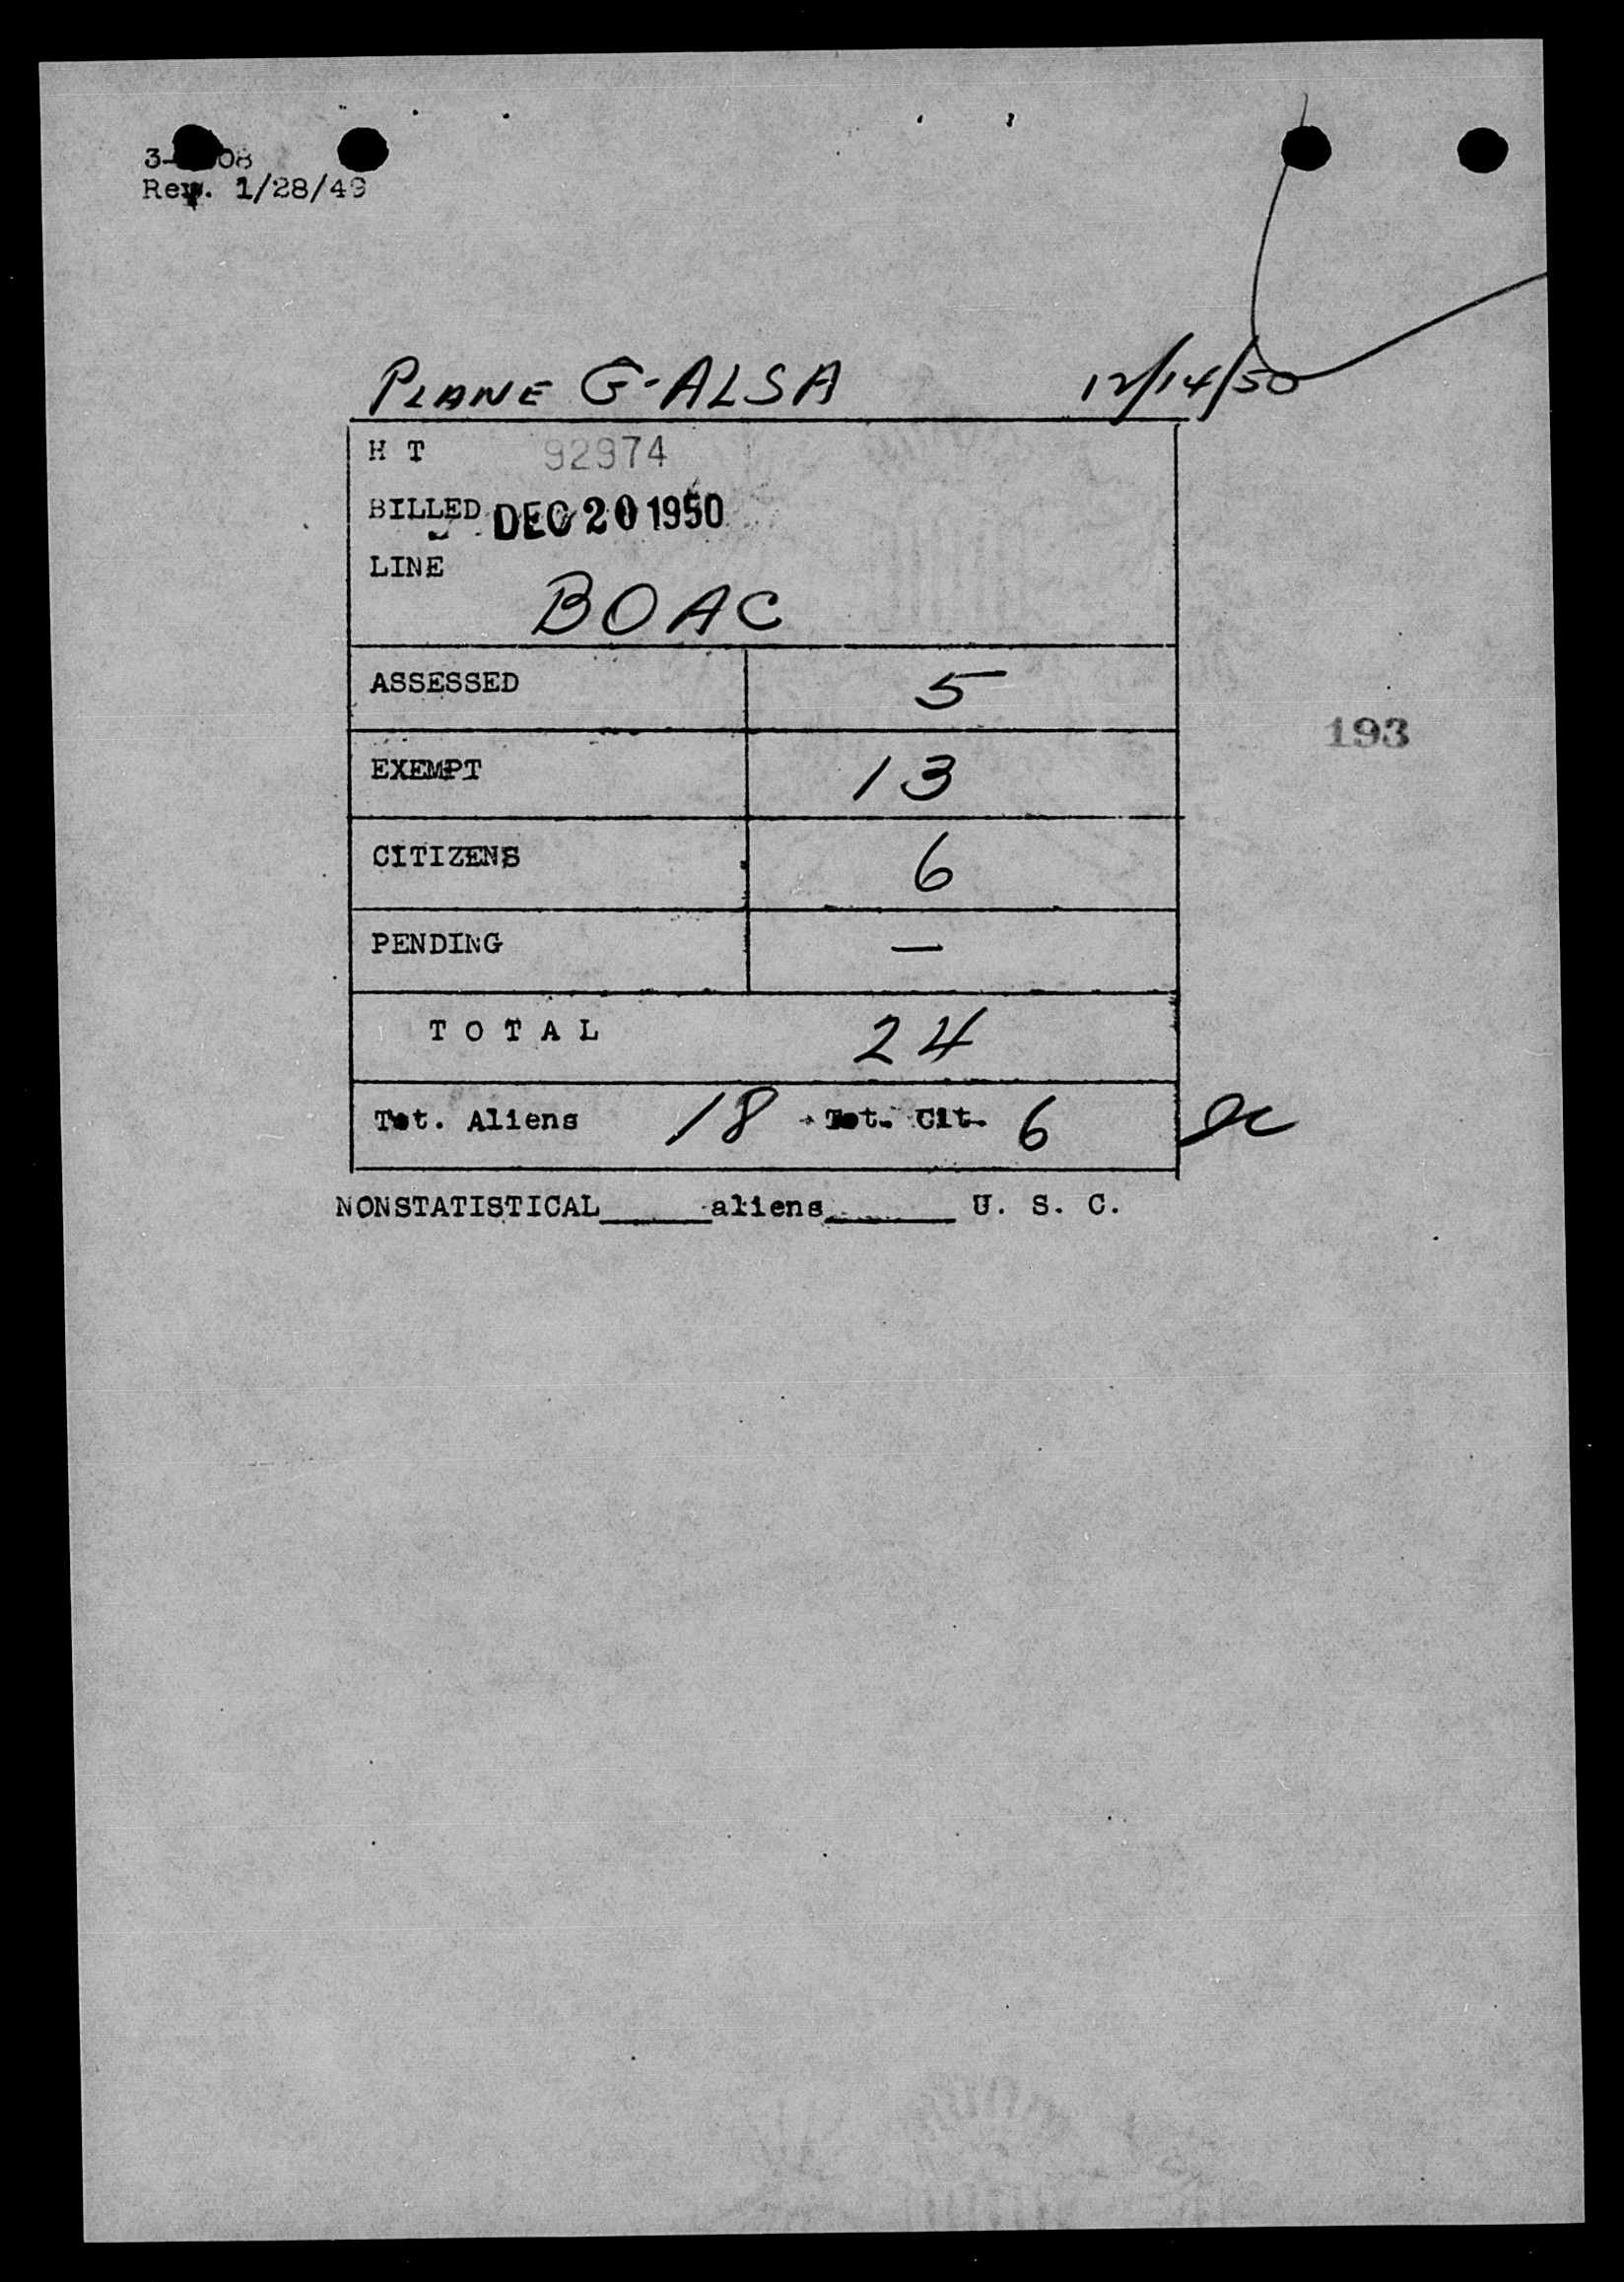 Rev. 1/28/49
PLANE G-ALSA 12/14/50
H T 92974
BILLED DEC 20 1950
LINE
BOAC
ASSESSED 5
193
EXEMPT 13
CITIZENS 6
PENDING —
TOTAL 24
Tot. Aliens 18 Tot. Cit. 6
NONSTATISTICAL______aliens_______ U. S. C.